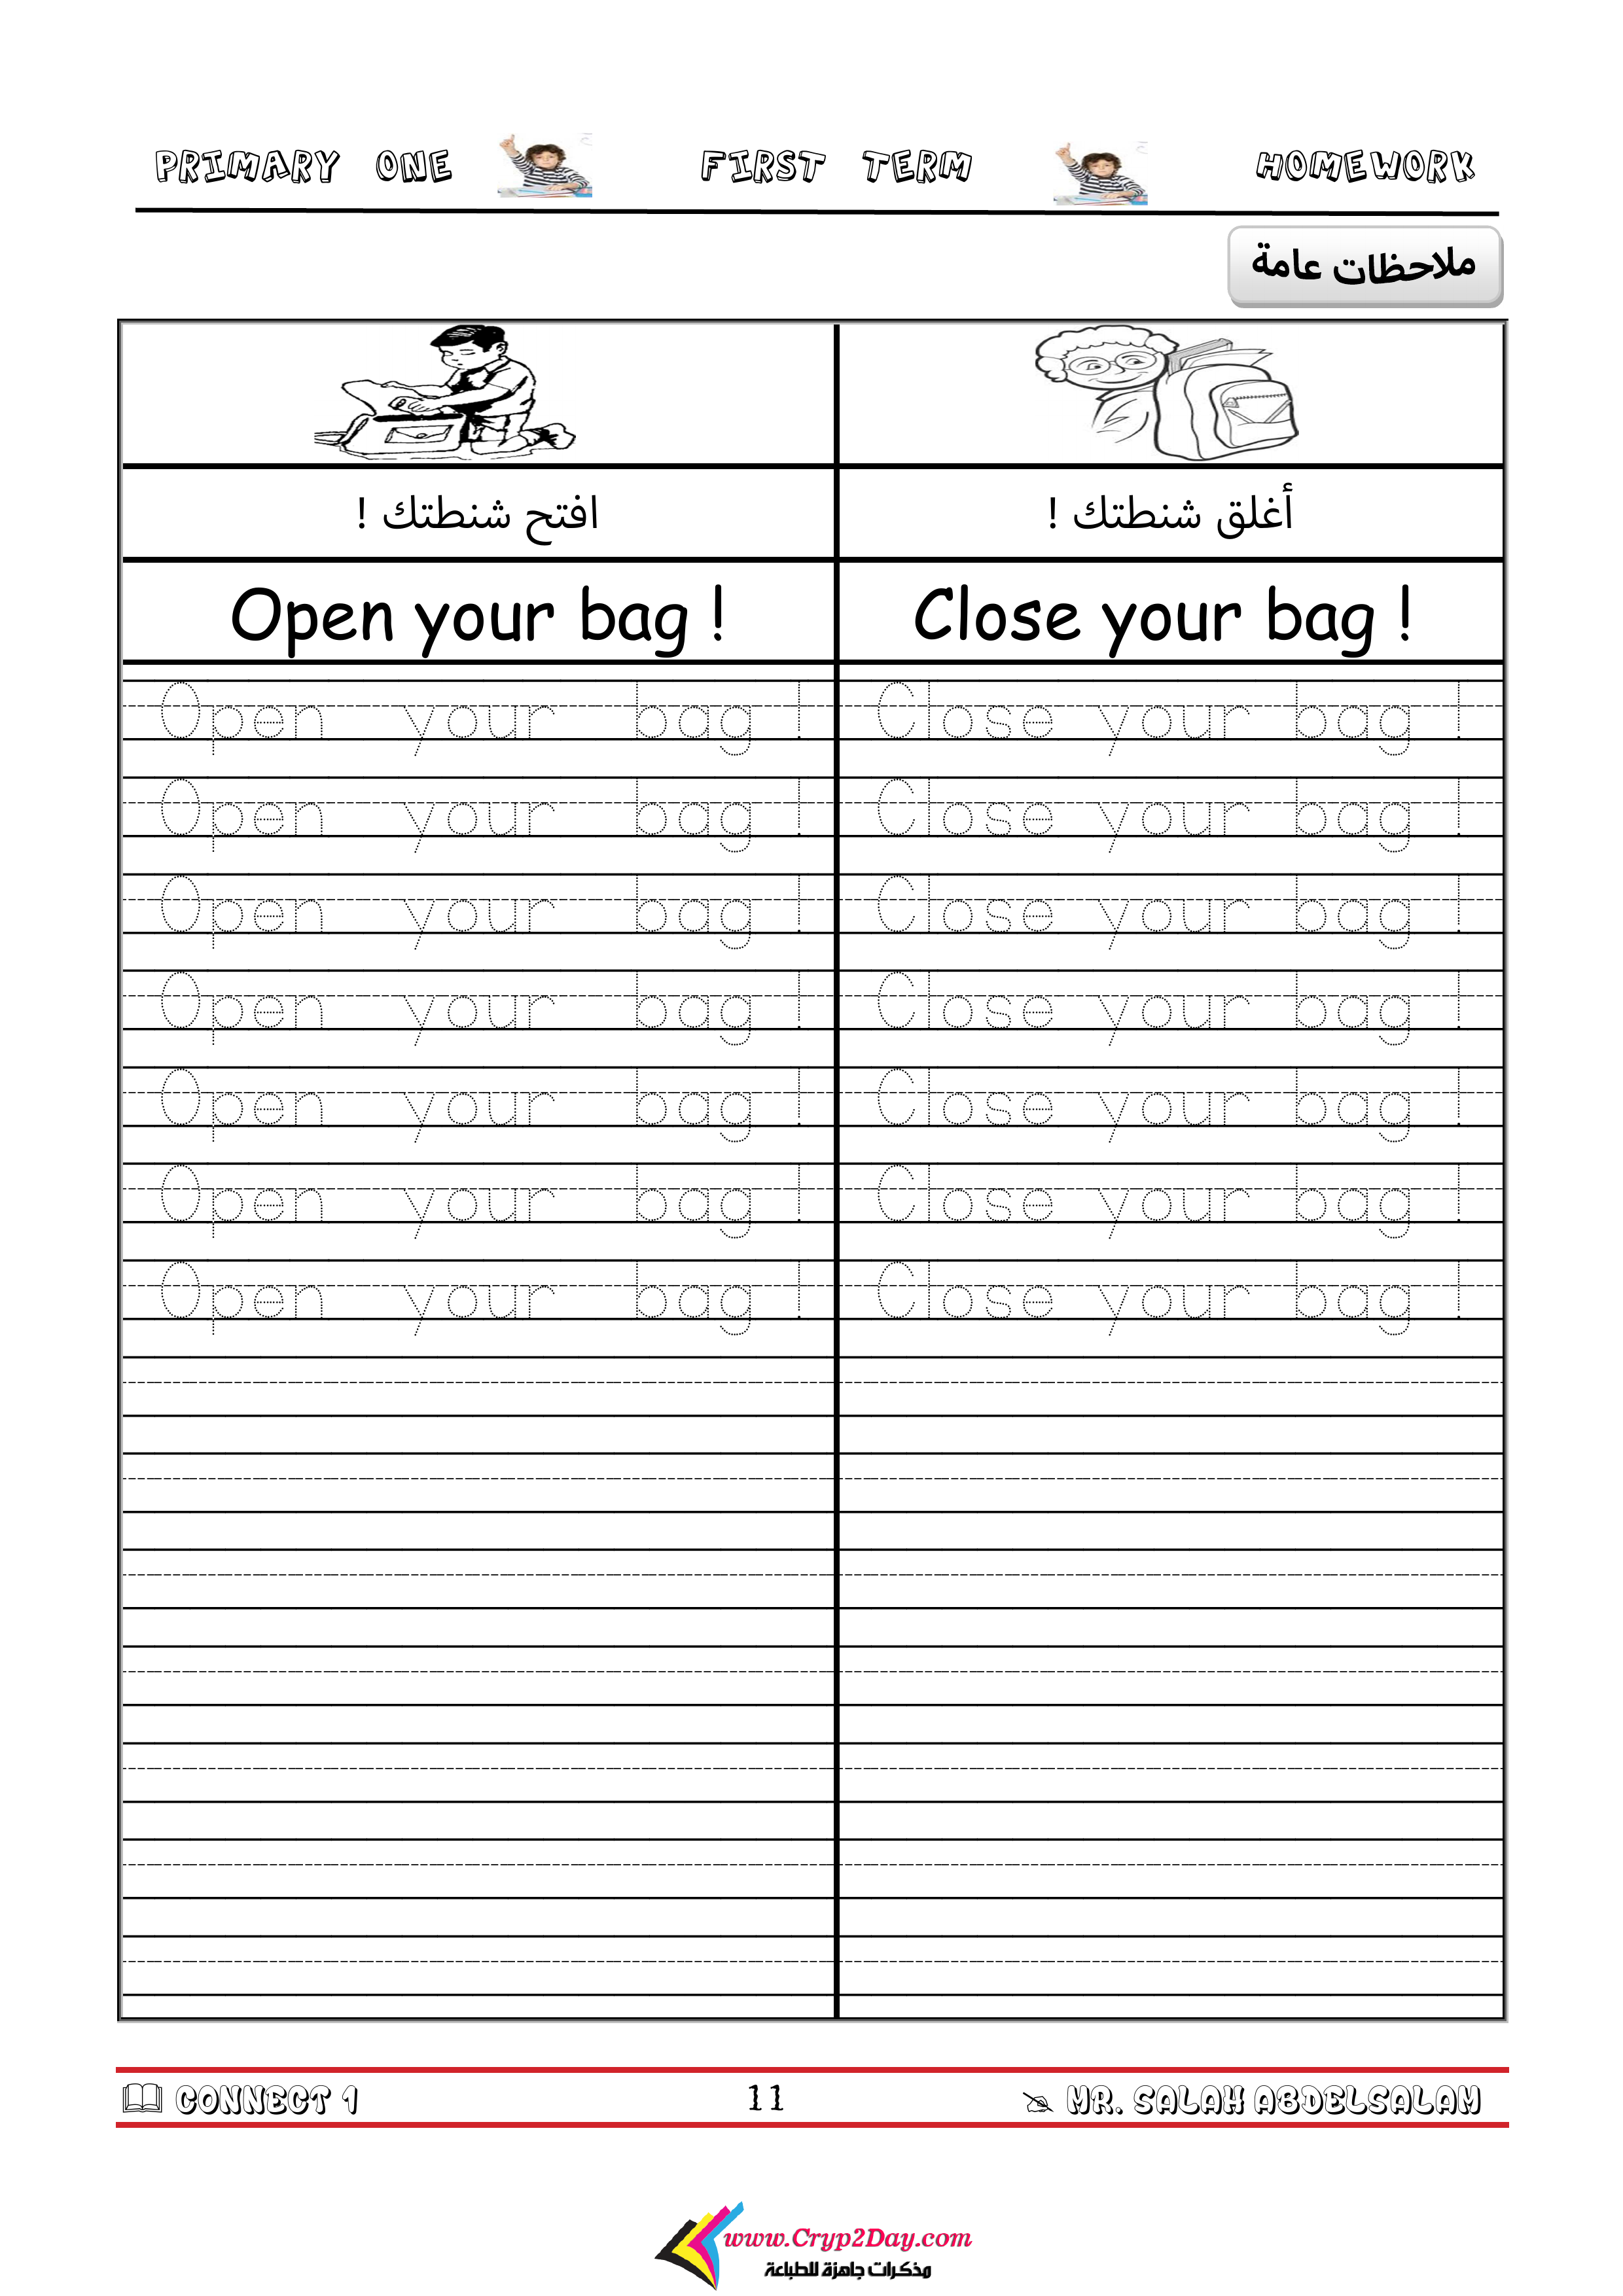 PRIMARY ONE FIRST TERM HOMEWORK
ملاحظات عامة
افتح شنطتك ! أغلق شنطتك !
Open your bag ! Close your bag !
Open your bag ! Close your bag !
Open your bag ! Close your bag !
Open your bag ! Close your bag !
Open your bag ! Close your bag !
Open your bag ! Close your bag !
Open your bag ! Close your bag !
Open your bag ! Close your bag !
CONNECT 1 11 MR. SALAH ABDELSALAM
www.Cryp2Day.com
مذكرات جاهزة للطباعة